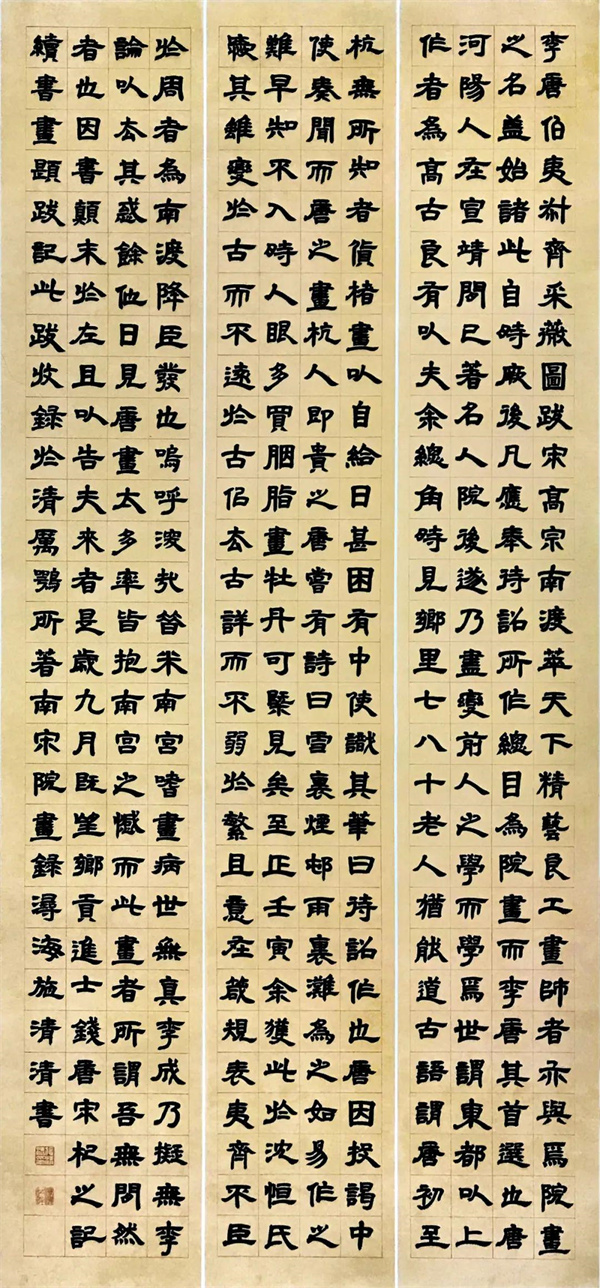 李唐伯夷叔齊采薇圖跋宋高宗南渡萃天下精藝良工畫師者亦與焉院畫
之名蓋始諸此自時厥後凡應奉待詔所作總目為院畫而李唐其首選也唐
河陽人在宣靖間已著名入院後遂乃盡變前人之學而學焉世謂東都以上
作者為高古良有以夫余總角時見鄉里七八十老人猶能道古語謂唐初至
杭無所知者貨楮畫以自給日甚困有中使識其筆曰待詔作也唐因投謁中
使奏聞而唐之畫杭人即貴之唐嘗有詩曰雪裏煙邨雨裏灘為之如易作之
難早知不入時人眼多買胭脂畫牡丹可槩見矣至正壬寅余獲此於沈恒氏
其雖變於古而不遠於古佀去古詳而不弱於繁且意在箴規表夷齊不臣
於周者為南渡降臣發也嗚呼深矣昔米南宮嗜畫病世無真李成乃擬無李
論以去其惑餘他日見唐畫太多率皆抱南宮之憾而此畫者所謂吾無間然
者也因書顛末於左且以告夫來者是歲九月既望鄉貢進士錢唐宋杞之記
續書畫題跋記此跋收錄於清厲鶚所著南宋院畫錄潯海施清清書